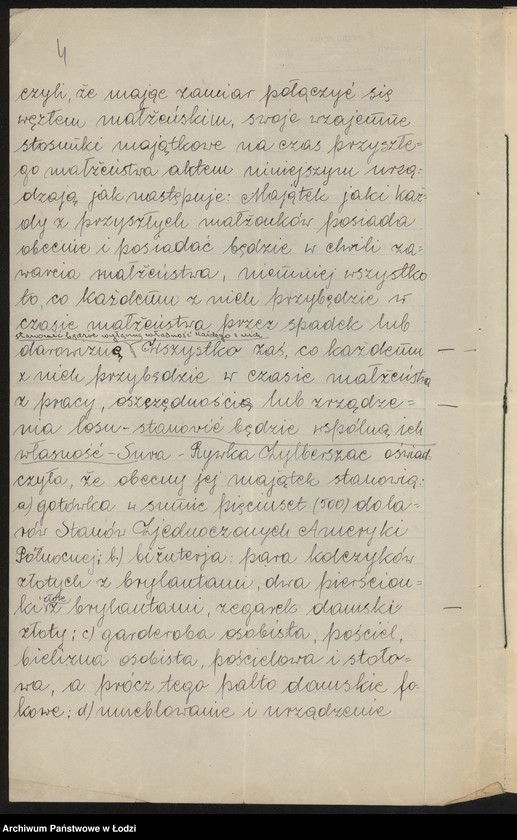 4
czyli, że mając zamiar połączyć się
węzłem małżeńskim, swoje wzajemne
stosunki majątkowe na czas przyszłe=
go małżeństwa aktem niniejszym urzą=
dzają jak następuje: Majątek jaki każ=
dy z przyszłych małżonków posiada
obecnie i posiadać będzie w chwili za=
warcia małżeństwa, niemniej wszystko
to, co każdemu z nich przybędzie w
czasie małżeństwa przez spadek lub
stanowić będzie wyłączną własność każdego z nich
darowiznę Wszystko zaś, co każdemu
z nich przybędzie w czasie małżeństwa
z pracy, oszczędnością lub zrządze=
nia losu - stanowić będzie wspólną ich
własność - Sura - Rywka Zylberszac oświad=
czyła, że obecny jej majątek stanowią:
a) gotówka w sumie pięciuset (500) dola=
rów Stanów Zjednoczonych Ameryki
Północnej; b) biżuterja: para kolczyków
złotych z brylantami, dwa pierścion=
ki z brylantami, zegarek damski
złoty; c) garderoba osobista, pościel,
bielizna osobista, pościelowa i stoło=
wa, a prócz tego palto damskie fo=
kowe; d) umeblowanie i urządzenie
Archiwum Państwowe w Łodzi